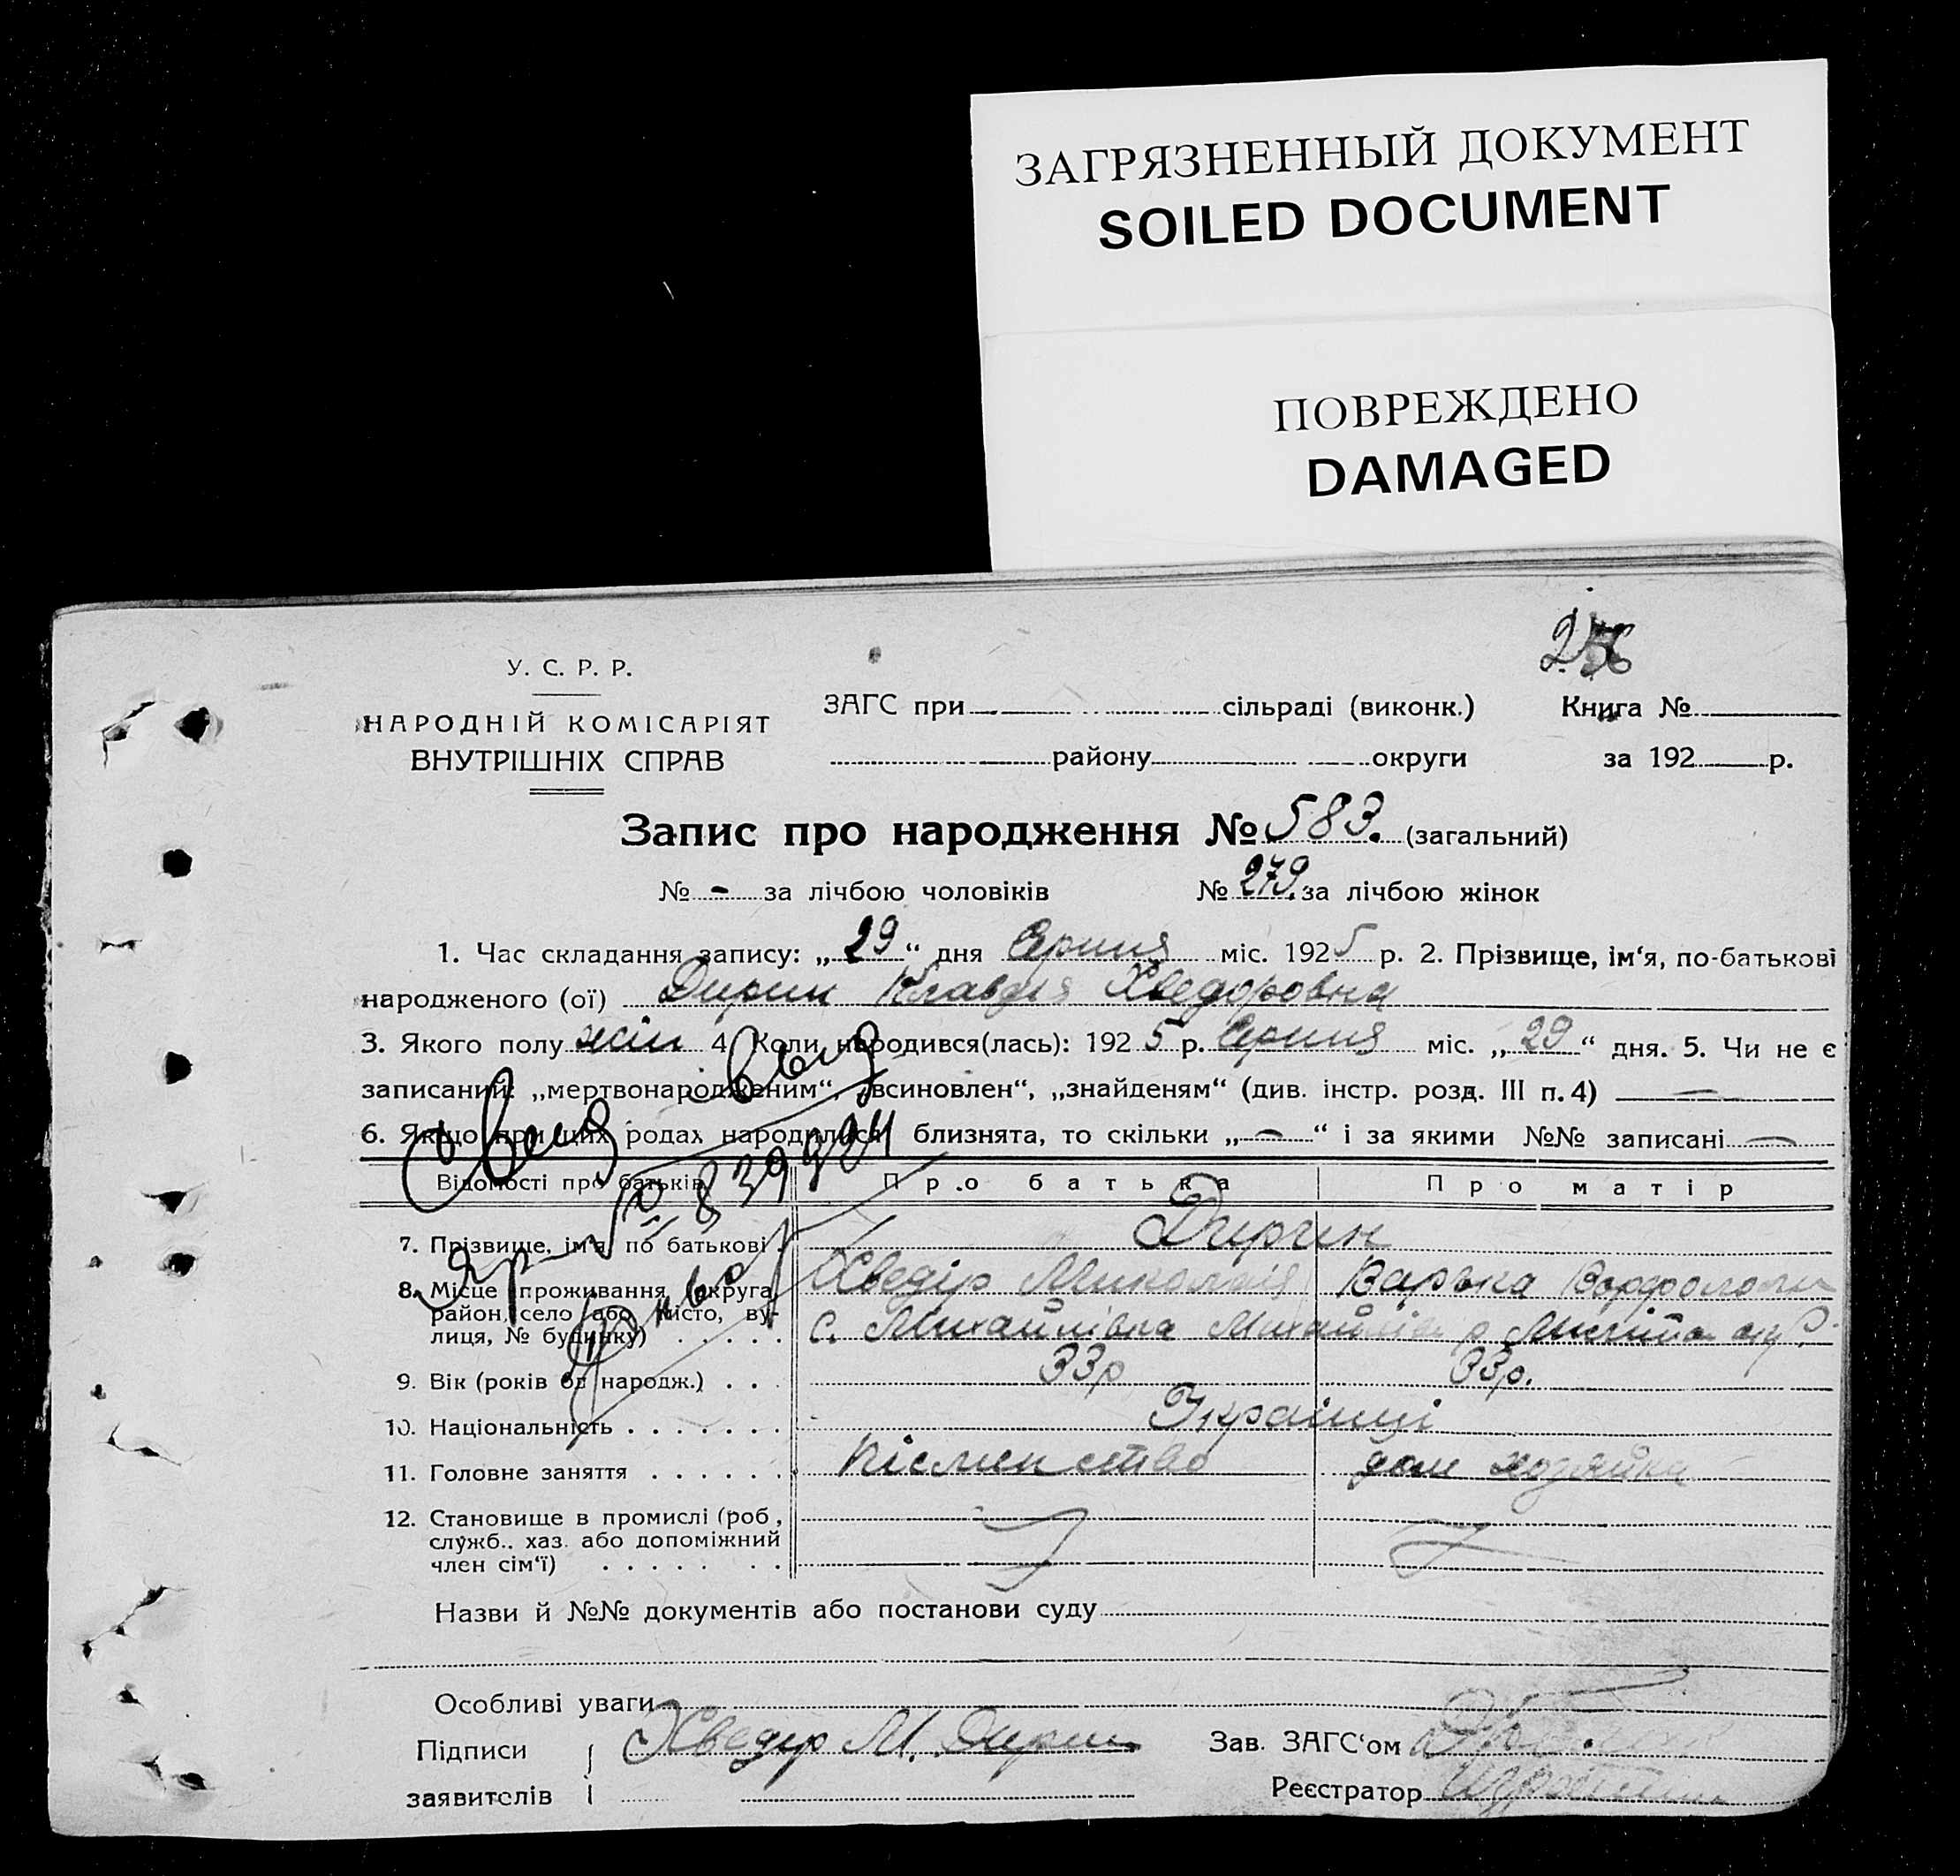 ЗАГРЯЗНЕННЫЙ ДОКУМЕНТ
SOILED DOCUMENT
ПОВРЕЖДЕНО
DAMAGED
У. С. Р. Р.
НАРОДНІЙ КОМІСАРІЯТ
ВНУТРІШНІХ СПРАВ
ЗАГС при сільраді (виконк.) Книга №
району округи за 192 р.
Запис про народження № 583. (загальний)
№ - за лічбою чоловіків № 279. за лічбою жінок
1. Час складання запису: „29“ дня Серпня міс. 1925 р. 2. Прізвище, ім‘я, по-батькові
народженого (ої) Дирин Клавдія Хведоровна
3. Якого полу жін 4. Коли народився(лась): 1925 р. Серпня міс. „29“ дня. 5. Чи не є
записаний: „мертвонародженим“, „всиновлен“, „знайденям“ (див. інстр. розд. III п. 4) —
6. Якщо при цих родах народилися близнята, то скільки „—“ і за якими №№ записані —
Відомості про батьків Про батька Про матір
7. Прізвище, ім‘я, по батькові Дирин
Хведір Миколаїв Варька
8. Місце проживання (округа,
район, село або місто, ву-
лиця, № будинку) с. Михайлівка
9. Вік (років од народж.) 33р 33р.
10. Національність Українці
11. Головне заняття письменство дом хозяйка
12. Становище в промислі (роб.,
служб.. хаз. або допоміжний
член сім‘ї)
Назви й №№ документів або постанови суду
Особливі уваги
Підписи Хведір М. Дирин Зав. ЗАГС‘ом
заявителів Реєстратор